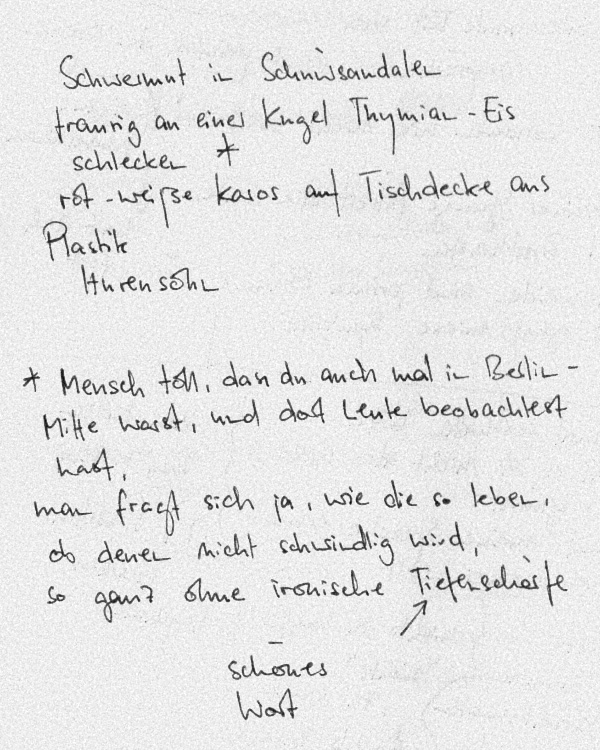 Schwermut in Schnürsandalen
traurig an einer Kugel Thymian-Eis
schlecken *
rot-weiße Karos auf Tischdecke aus
Plastik
Hurensohn
* Mensch toll, dass du auch mal in Berlin-
Mitte warst, und dort Leute beobachtest
hast,
man fragt sich ja, wie die so leben,
ob denen nicht schwindlig wird,
so ganz ohne ironische Tiefenschärfe
schönes
Wort